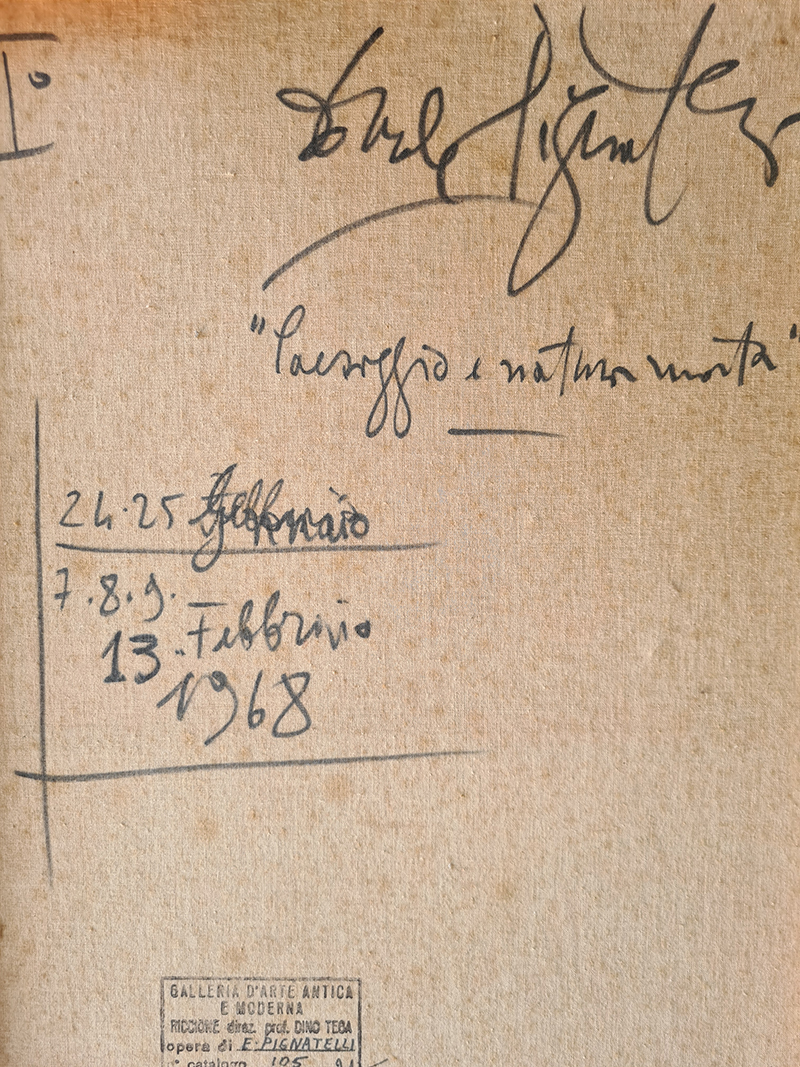 I°
Ercole Pignatelli
"Paesaggio e natura morta"
24.25
7.8.9.
13. Febbraio
1968
GALLERIA D'ARTE ANTICA
E MODERNA
RICCIONE direz. prof. DINO TEGA
opera di E. PIGNATELLI
catalogo 105